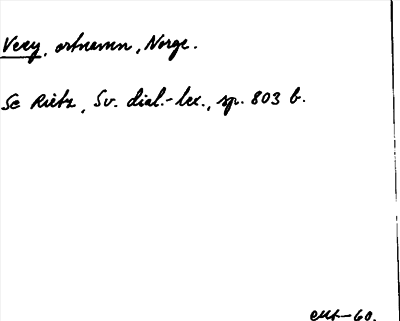 Veey, ortnamn, Norge.
Se Rietz, Sv. dial.-lex., sp. 803 b.
-60.